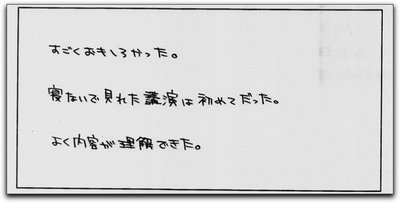 すごくおもしろかった。
寝ないで見れた講演は初めてだった。
よく内容が理解できた。